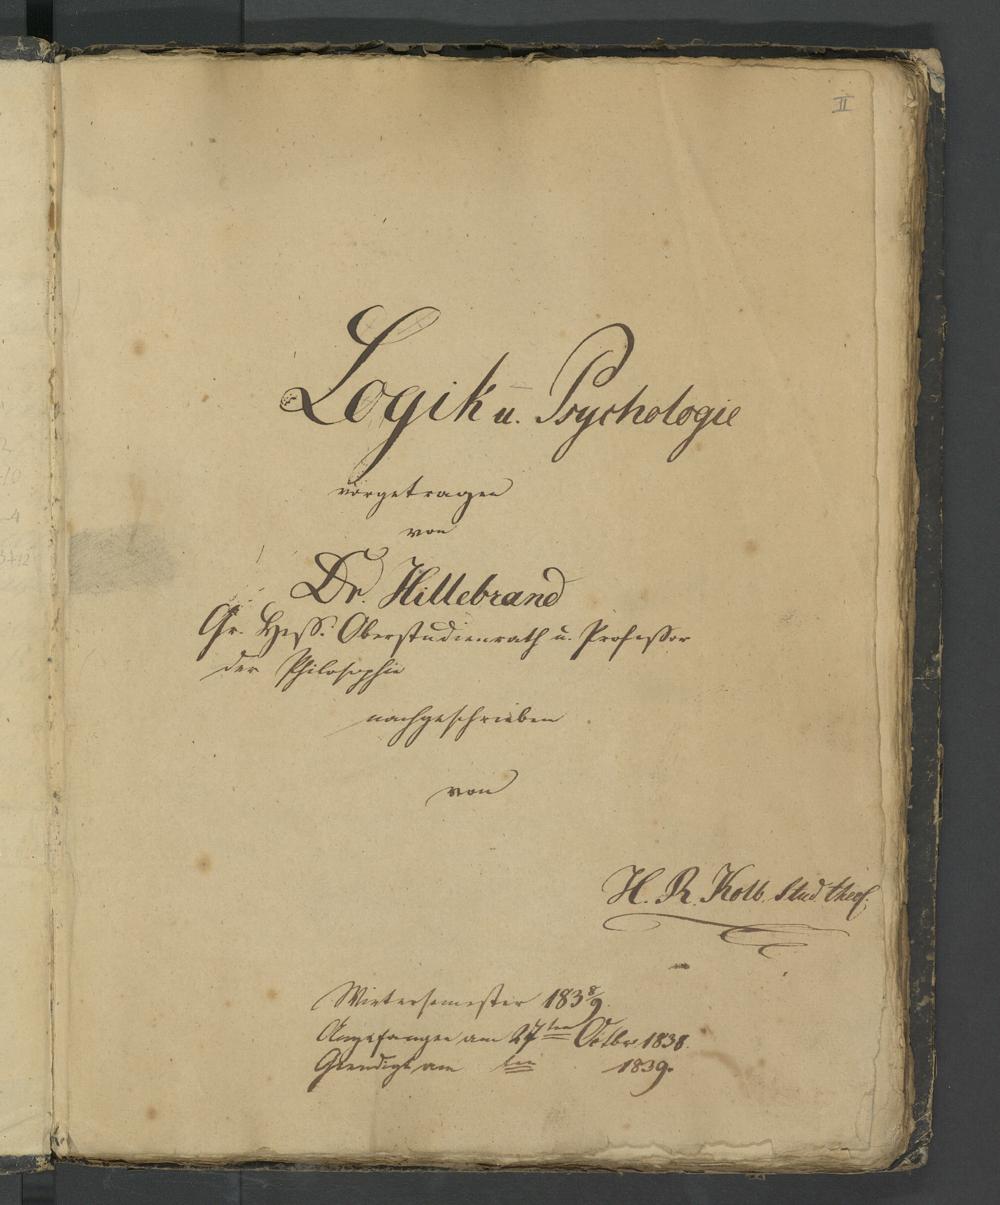 II
Logik u. Psychologie
vorgetragen
von
Dr. Hillebrand
Gr. Hess. Oberstudienrath u. Professor
der Philosophie
nachgeschrieben
von
H. R. Kolb. Stud theol.
Wintersemester 183 8/9.
Angefangen am 27ten Octbr 1838.
Geendigt am ten 1839.